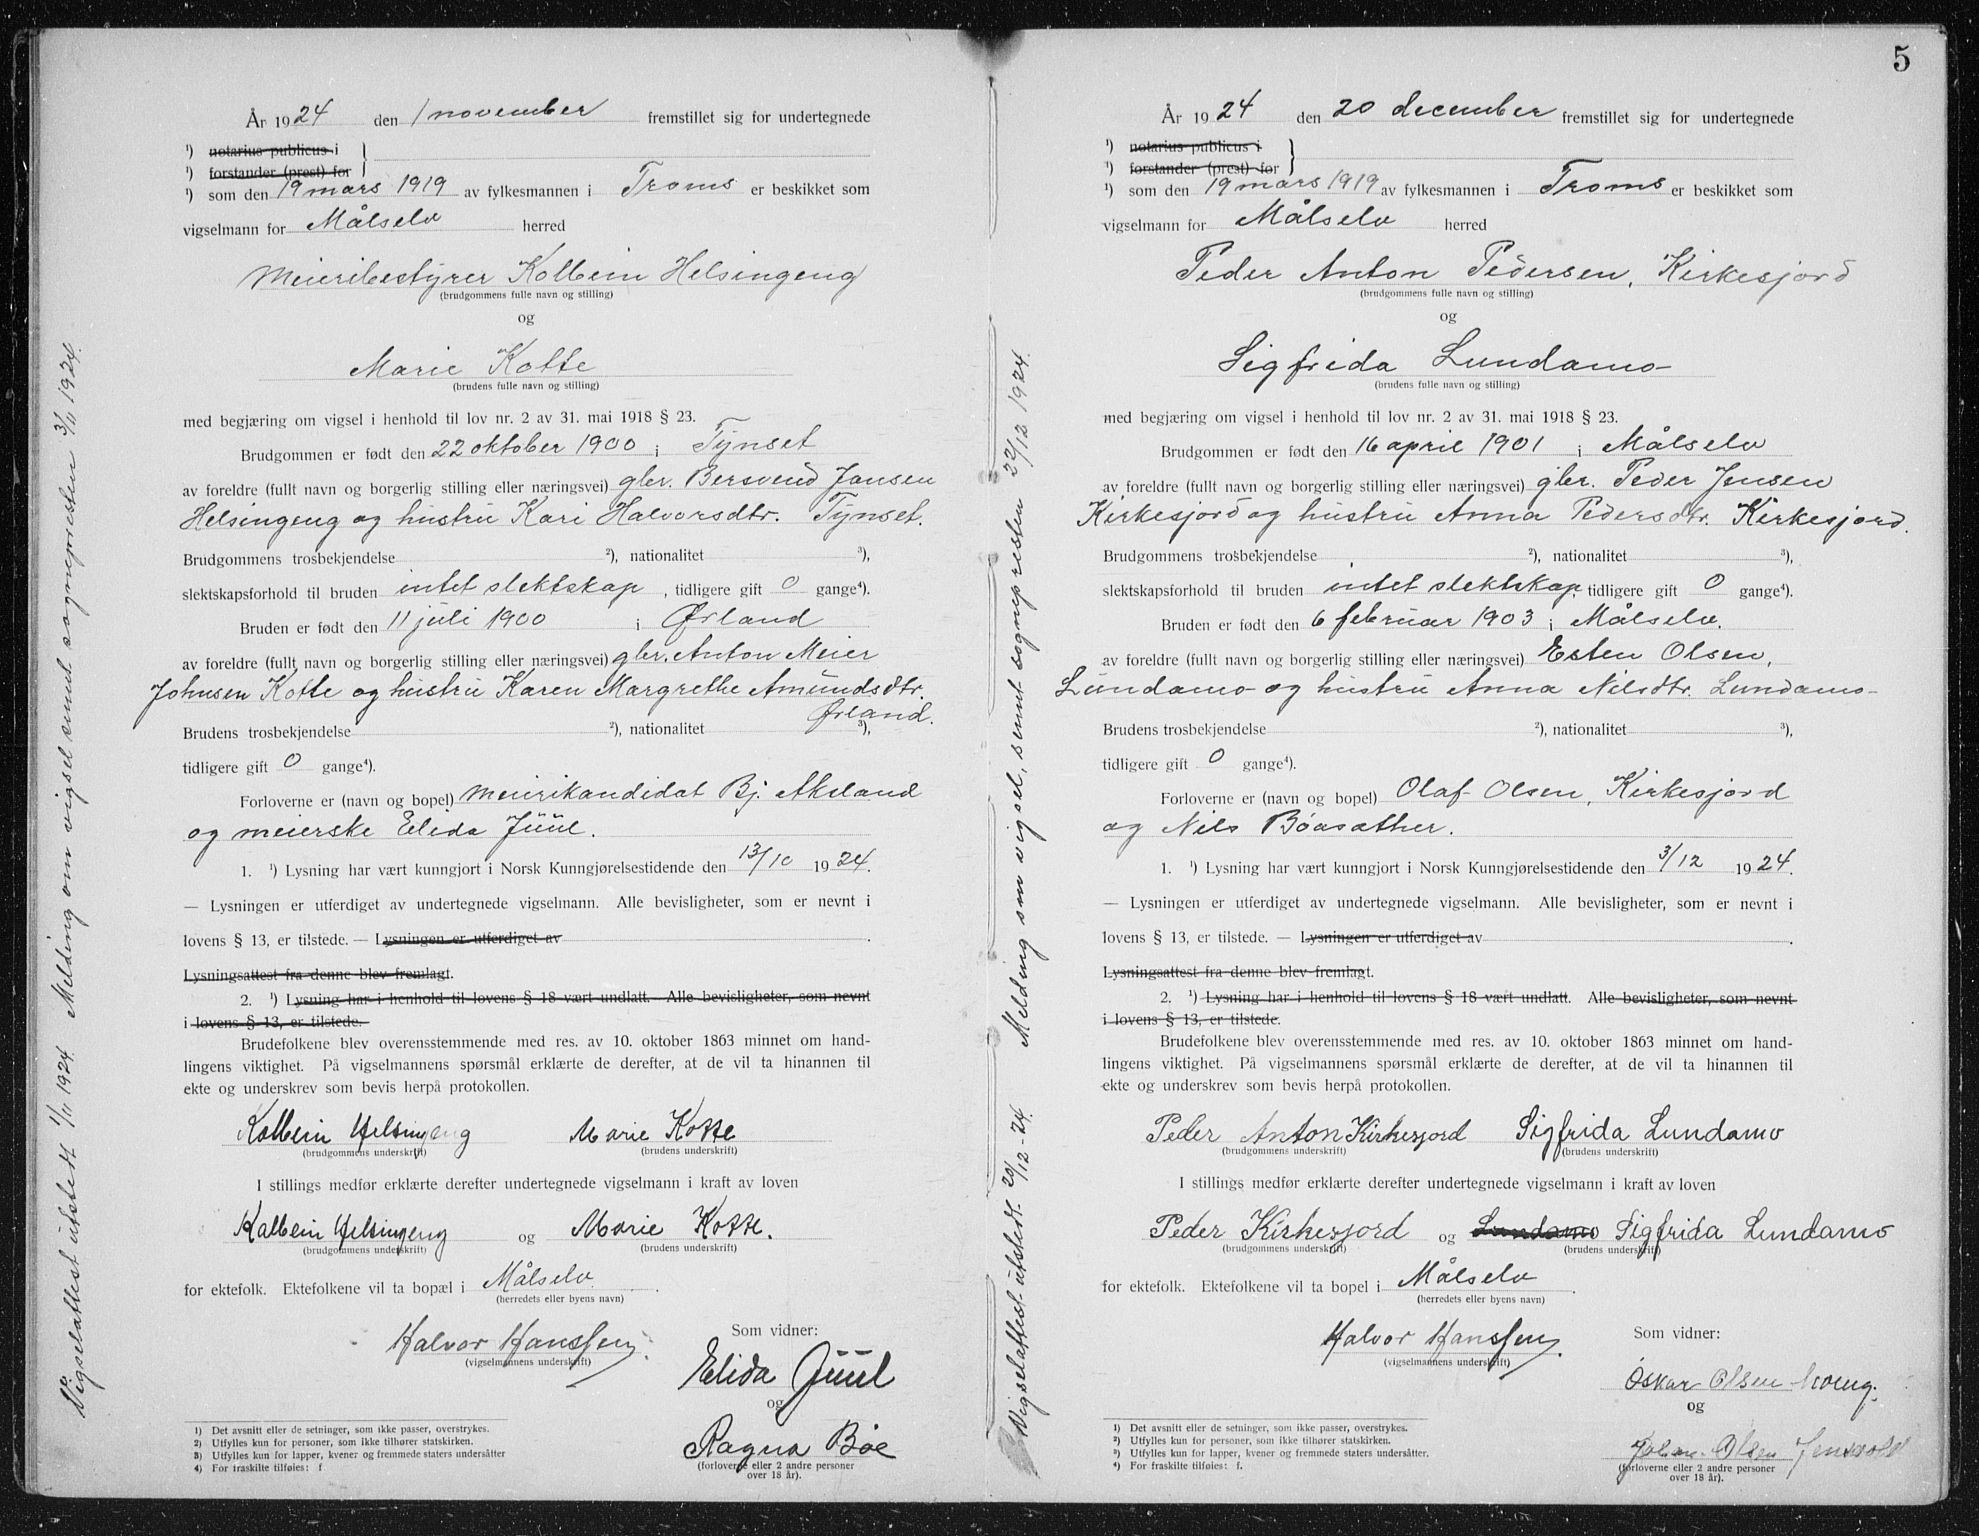 År 1924 den 1 november fremstillet sig for undertegnede
¹) notarius publicus i
¹) forstander (prest) for
¹) som den 19 mars 1919 av fylkesmannen i Troms er beskikket som
vigselmann for Målselv herred
Meieribestyrer Kolbein Helsingeng
(brudgommens fulle navn og stilling)
og
Marie Kotte
(brudens fulle navn og stilling)
med begjæring om vigsel i henhold til lov nr. 2 av 31. mai 1918 § 23.
Brudgommen er født den 22 oktober 1900 i Tynset
av foreldre (fullt navn og borgerlig stilling eller næringsvei) gbr. Bersvend Jansen
Helsingeng og hustru Kari Halvorsdtr. Tynset.
Brudgommens trosbekjendelse ²), nationalitet ³),
slektskapsforhold til bruden intet slektskap, tidligere gift 0 gange⁴).
Bruden er født den 11 juli 1900 i Ørland
av foreldre (fullt navn og borgerlig stilling eller næringsvei) gbr. Anton Meier
Johnsen Kotte og hustru Karen Margrethe Amundsdtr.
Ørland.
Brudens trosbekjendelse ²), nationalitet ³),
tidligere gift 0 gange⁴).
Forloverne er (navn og bopel) meierikandidat Bj. Aksland
og meierske Elida Juul.
1. ¹) Lysning har vært kunngjort i Norsk Kunngjørelsestidende den 13/10 1924.
— Lysningen er utferdiget av undertegnede vigselmann. Alle bevisligheter, som er nevnt i
lovens § 13, er tilstede. — Lysningen er utferdiget av .
Lysningsattest fra denne blev fremlagt.
2. ¹) Lysning har i henhold til lovens § 18 vært undlatt. Alle bevisligheter, som nevnt
i lovens § 13, er tilstede.
Brudefolkene blev overensstemmende med res. av 10. oktober 1863 minnet om hand-
lingens viktighet. På vigselmannens spørsmål erklærte de derefter, at de vil ta hinannen til
ekte og underskrev som bevis herpå protokollen.
Kolbein Helsingeng Marie Kotte
(brudgommens underskrift) (brudens underskrift)
I stillings medfør erklærte derefter undertegnede vigselmann i kraft av loven
Kolbein Helsingeng og Marie Kotte.
(brudgommens underskrift) (brudens underskrift)
for ektefolk. Ektefolkene vil ta bopæl i Målselv.
(herredets eller byens navn)
Halvor Hanssen.
(vigselmannens underskrift)
Som vidner:
Elida Juul
og
Ragna Bøe
(forloverne eller 2 andre personer
over 18 år).
1) Det avsnitt eller de setninger, som ikke passer, overstrykes.
2) Utfylles kun for personer, som ikke tilhører statskirken.
3) Utfylles kun for lapper, kvener og fremmede staters undersåtter
4) For fraskilte tilføies: f
Vigselattest utstedt 1/11 1924. Melding om vigsel sendt sognepresten 3/11 1924.
5
År 1924 den 20 december fremstillet sig for undertegnede
¹) notarius publicus i
¹) forstander (prest) for
¹) som den 19 mars 1919 av fylkesmannen i Troms er beskikket som
vigselmann for Målselv herred
Peder Anton Pedersen, Kirkesjord
(brudgommens fulle navn og stilling)
og
Sigfrida Lundamo
(brudens fulle navn og stilling)
med begjæring om vigsel i henhold til lov nr. 2 av 31. mai 1918 § 23.
Brudgommen er født den 16 april 1901 i Målselv
av foreldre (fullt navn og borgerlig stilling eller næringsvei) gbr. Peder Jensen
Kirkesjord og hustru Anna Pedersdtr. Kirkesjord.
Brudgommens trosbekjendelse ²), nationalitet ³),
slektskapsforhold til bruden intet slektskap, tidligere gift 0 gange⁴).
Bruden er født den 6 februar 1903 i Målselv.
av foreldre (fullt navn og borgerlig stilling eller næringsvei) Esten Olsen,
Lundamo og hustru Anna Nilsdtr. Lundamo
Brudens trosbekjendelse ²), nationalitet ³),
tidligere gift 0 gange⁴).
Forloverne er (navn og bopel) Olaf Olsen, Kirkesjord
og Nils Bøasæther.
1. ¹) Lysning har vært kunngjort i Norsk Kunngjørelsestidende den 3/12 1924.
— Lysningen er utferdiget av undertegnede vigselmann. Alle bevisligheter, som er nevnt i
lovens § 13, er tilstede. — Lysningen er utferdiget av .
Lysningsattest fra denne blev fremlagt.
2. ¹) Lysning har i henhold til lovens § 18 vært undlatt. Alle bevisligheter, som nevnt
i lovens § 13, er tilstede.
Brudefolkene blev overensstemmende med res. av 10. oktober 1863 minnet om hand-
lingens viktighet. På vigselmannens spørsmål erklærte de derefter, at de vil ta hinannen til
ekte og underskrev som bevis herpå protokollen.
Peder Anton Kirkesjord Sigfrida Lundamo
(brudgommens underskrift) (brudens underskrift)
I stillings medfør erklærte derefter undertegnede vigselmann i kraft av loven
Peder Kirkesjord og Lundamo Sigfrida Lundamo
(brudgommens underskrift) (brudens underskrift)
for ektefolk. Ektefolkene vil ta bopel i Målselv.
(herredets eller byens navn)
Halvor Hanssen.
(vigselmannens underskrift)
Som vidner:
Oskar Olsen Moeng.
og
Johan Olsen
(forloverne eller 2 andre personer
over 18 år).
¹) Det avsnitt eller de setninger, som ikke passer, overstrykes.
²) Utfylles kun for personer, som ikke tilhører statskirken.
³) Utfylles kun for lapper, kvener og fremmede staters undersåtter.
⁴) For fraskilte tilføies: f.
Vigselattest utstedt 20/12-24. Melding om vigsel, sendt sognepresten 22/12 1924.